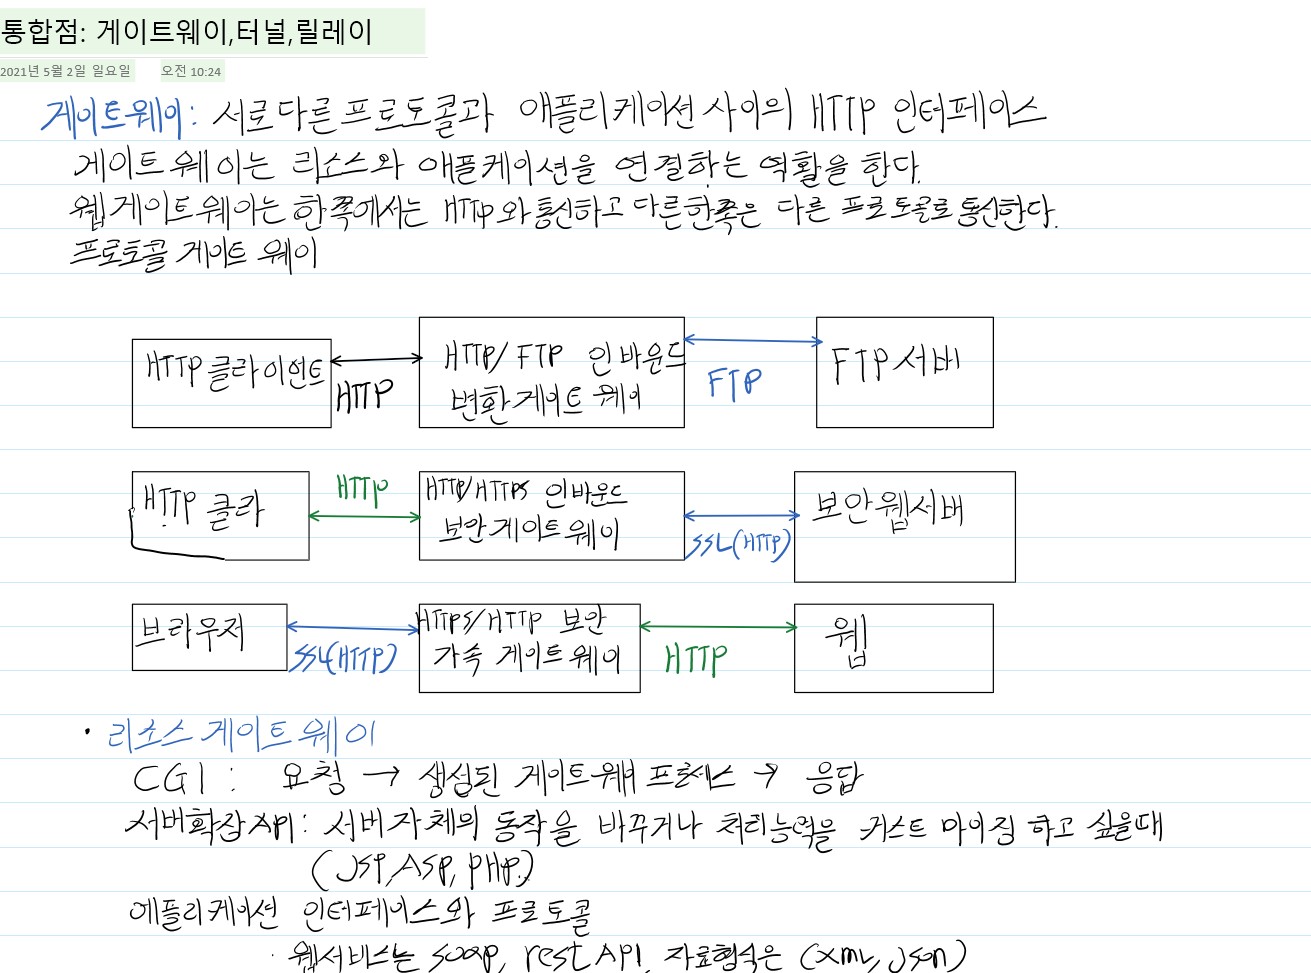 통합점: 게이트웨이,터널,릴레이
2021년 5월 2일 일요일 오전 10:24
게이트웨이: 서로다른 프로토콜과 애플리케이션 사이의 HTTP 인터페이스
게이트웨이는 리소스와 애플케이션을 연결하는 역활을 한다.
웹게이트웨이는 한쪽에서는 HTTP와 통신하고 다른한쪽은 다른 프로토콜로 통신한다.
프로토콜 게이트웨이
HTTP 클라이언트
HTTP
HTTP/FTP 인바운드
변환게이트웨이
FTP
FTP 서버
HTTP 클라
HTTP
HTTP/HTTPS 인바운드
보안게이트웨이
SSL(HTTP)
보안웹서버
브라우저
SSL(HTTP)
HTTPS/HTTP 보안
가속 게이트웨이
HTTP
웹
· 리소스 게이트웨이
CGI : 요청 → 생성된 게이트웨이 프로세스 → 응답
서버확장API: 서버자체의 동작을 바꾸거나 처리능력을 커스트마이징 하고 싶을때
(JSP,ASP,PHP.)
애플리케이션 인터페이스와 프로토콜
· 웹서비스는 soap, rest API, 자료형식은 (xml, json)